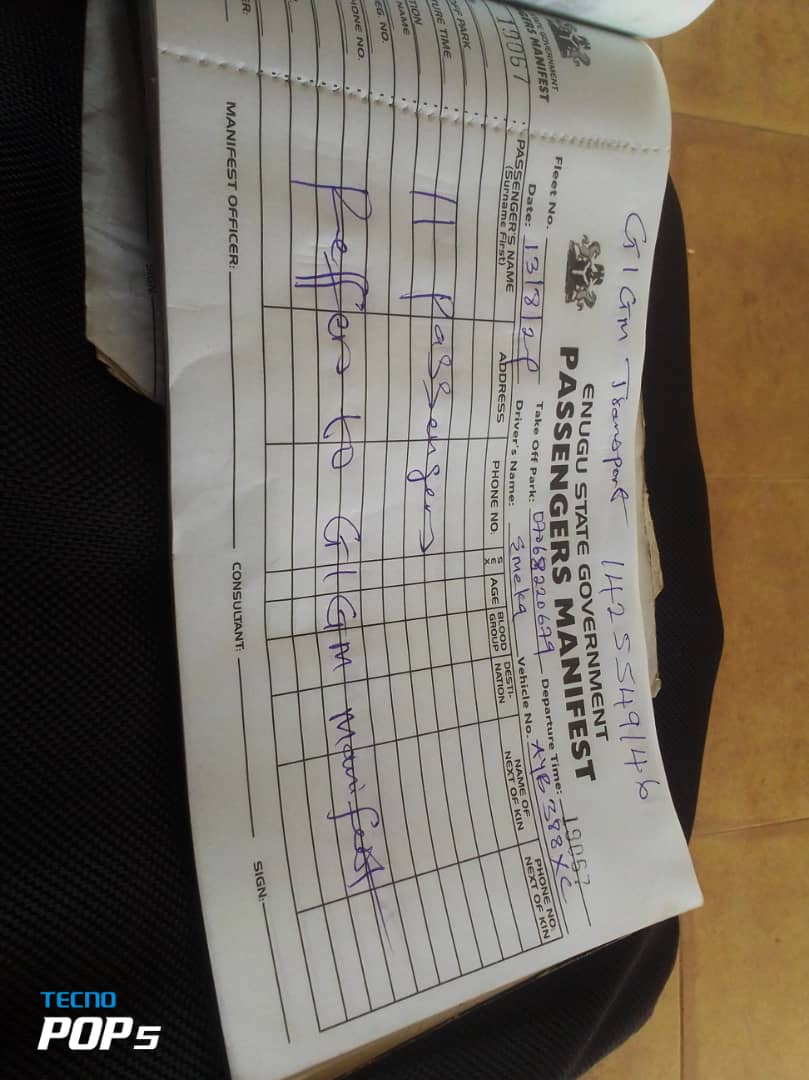 GIGM Transport 1425549146
ENUGU STATE GOVERNMENT
PASSENGERS MANIFEST
19067
Fleet No.
Take Off Park: 07068220679 Departure Time:
Date: 13/8/2
Driver's Name: Emeka Vehicle No. AYB 388XC
PASSENGER'S NAME
(Surname First)
ADDRESS
PHONE NO.
SEX
AGE
BLOOD GROUP
DESTI-
NATION
NAME OF
NEXT OF KIN
PHONE NO.
NEXT OF KIN
11 Passengers
Reffers to GIGM Manifest
MANIFEST OFFICER:
CONSULTANT:
SIGN:
GOVERNMENT
MANIFEST
19067
PARK
TIME
NAME
NO.
PHONE NO.
TECNO
POP 5